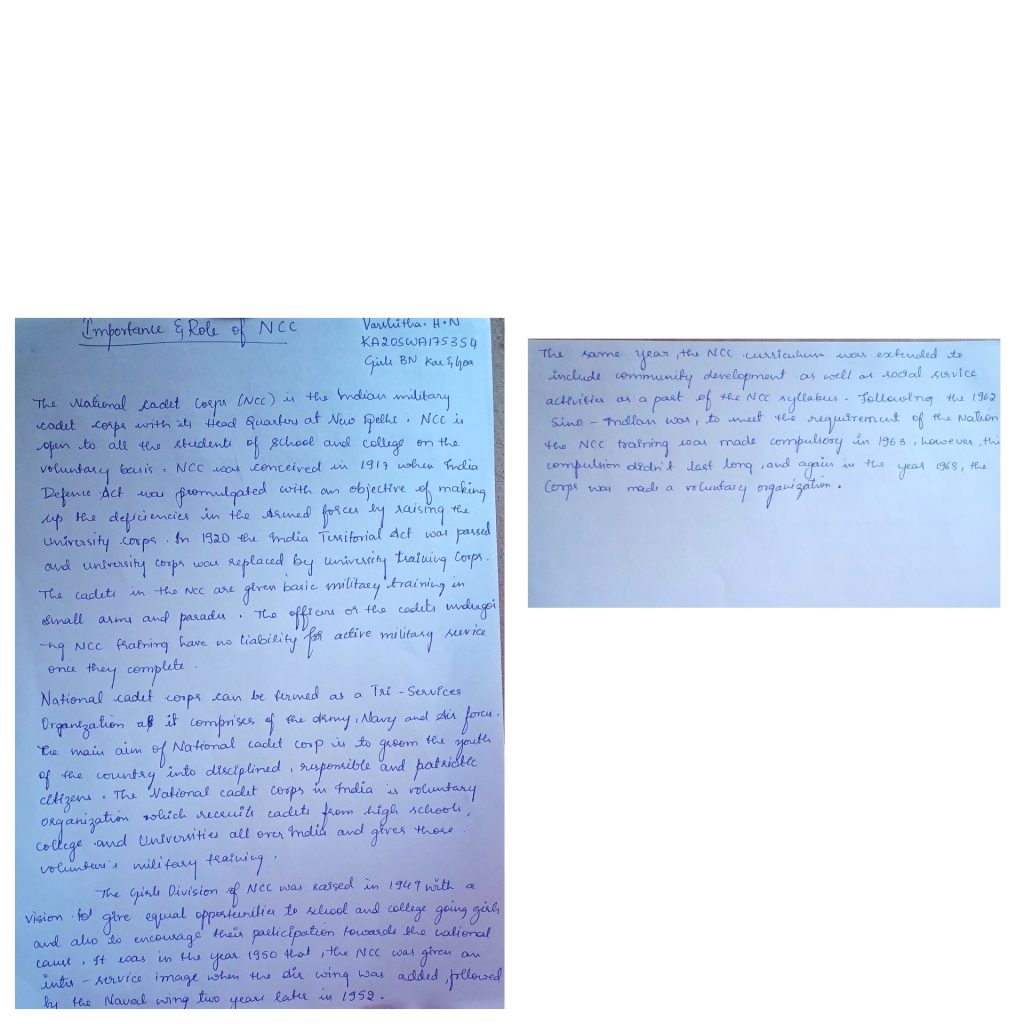 Importance & Role of NCC
Varshitha. H.N
KA20SWA175354
Girls BN Kar & Goa
The National cadet Corps (NCC) is the Indian military
cadet corps with its Head Quarters at New Delhi. NCC is
open to all the students of school and college on the
voluntary basis. NCC was conceived in 1917 when India
Defence Act was promulgated with an objective of making
up the deficiencies in the Armed forces by raising the
University corps. In 1920 the India Territorial Act was passed
and university corps was replaced by University training Corps.
The cadets in the NCC are given basic military training in
small arms and parades. The officers or the cadets undergoi
-ng NCC training have no liability for active military service
once they complete.
National cadet corps can be termed as a Tri-Services
Organization as it comprises of the Army, Navy and Air force.
The main aim of National cadet corp is to groom the youth
of the country into disciplined, responsible and patriotic
citizens. The National cadet Corps in India is voluntary
organization which recruits cadets from high schools,
college and Universities all over India and gives those
volunteer's military training.
The Girls Division of NCC was raised in 1949 with a
vision to give equal opportunities to school and college going girls
and also to encourage their participation towards the national
cause. It was in the year 1950 that, the NCC was given an
inter-service image when the Air wing was added, followed
by the Naval wing two years later in 1952.
The same year, the NCC curriculum was extended to
include community development as well as social service
activities as a part of the NCC syllabus. Following the 1962
Sino-Indian war, to meet the requirement of the Nation
the NCC training was made compulsory in 1963, however, this
compulsion didn't last long, and again in the year 1968, the
Corps was made a voluntary organization.